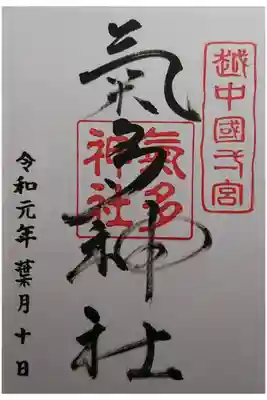 越中國一宮
氣多神社
氣多
神社
令和元年 葉月十日